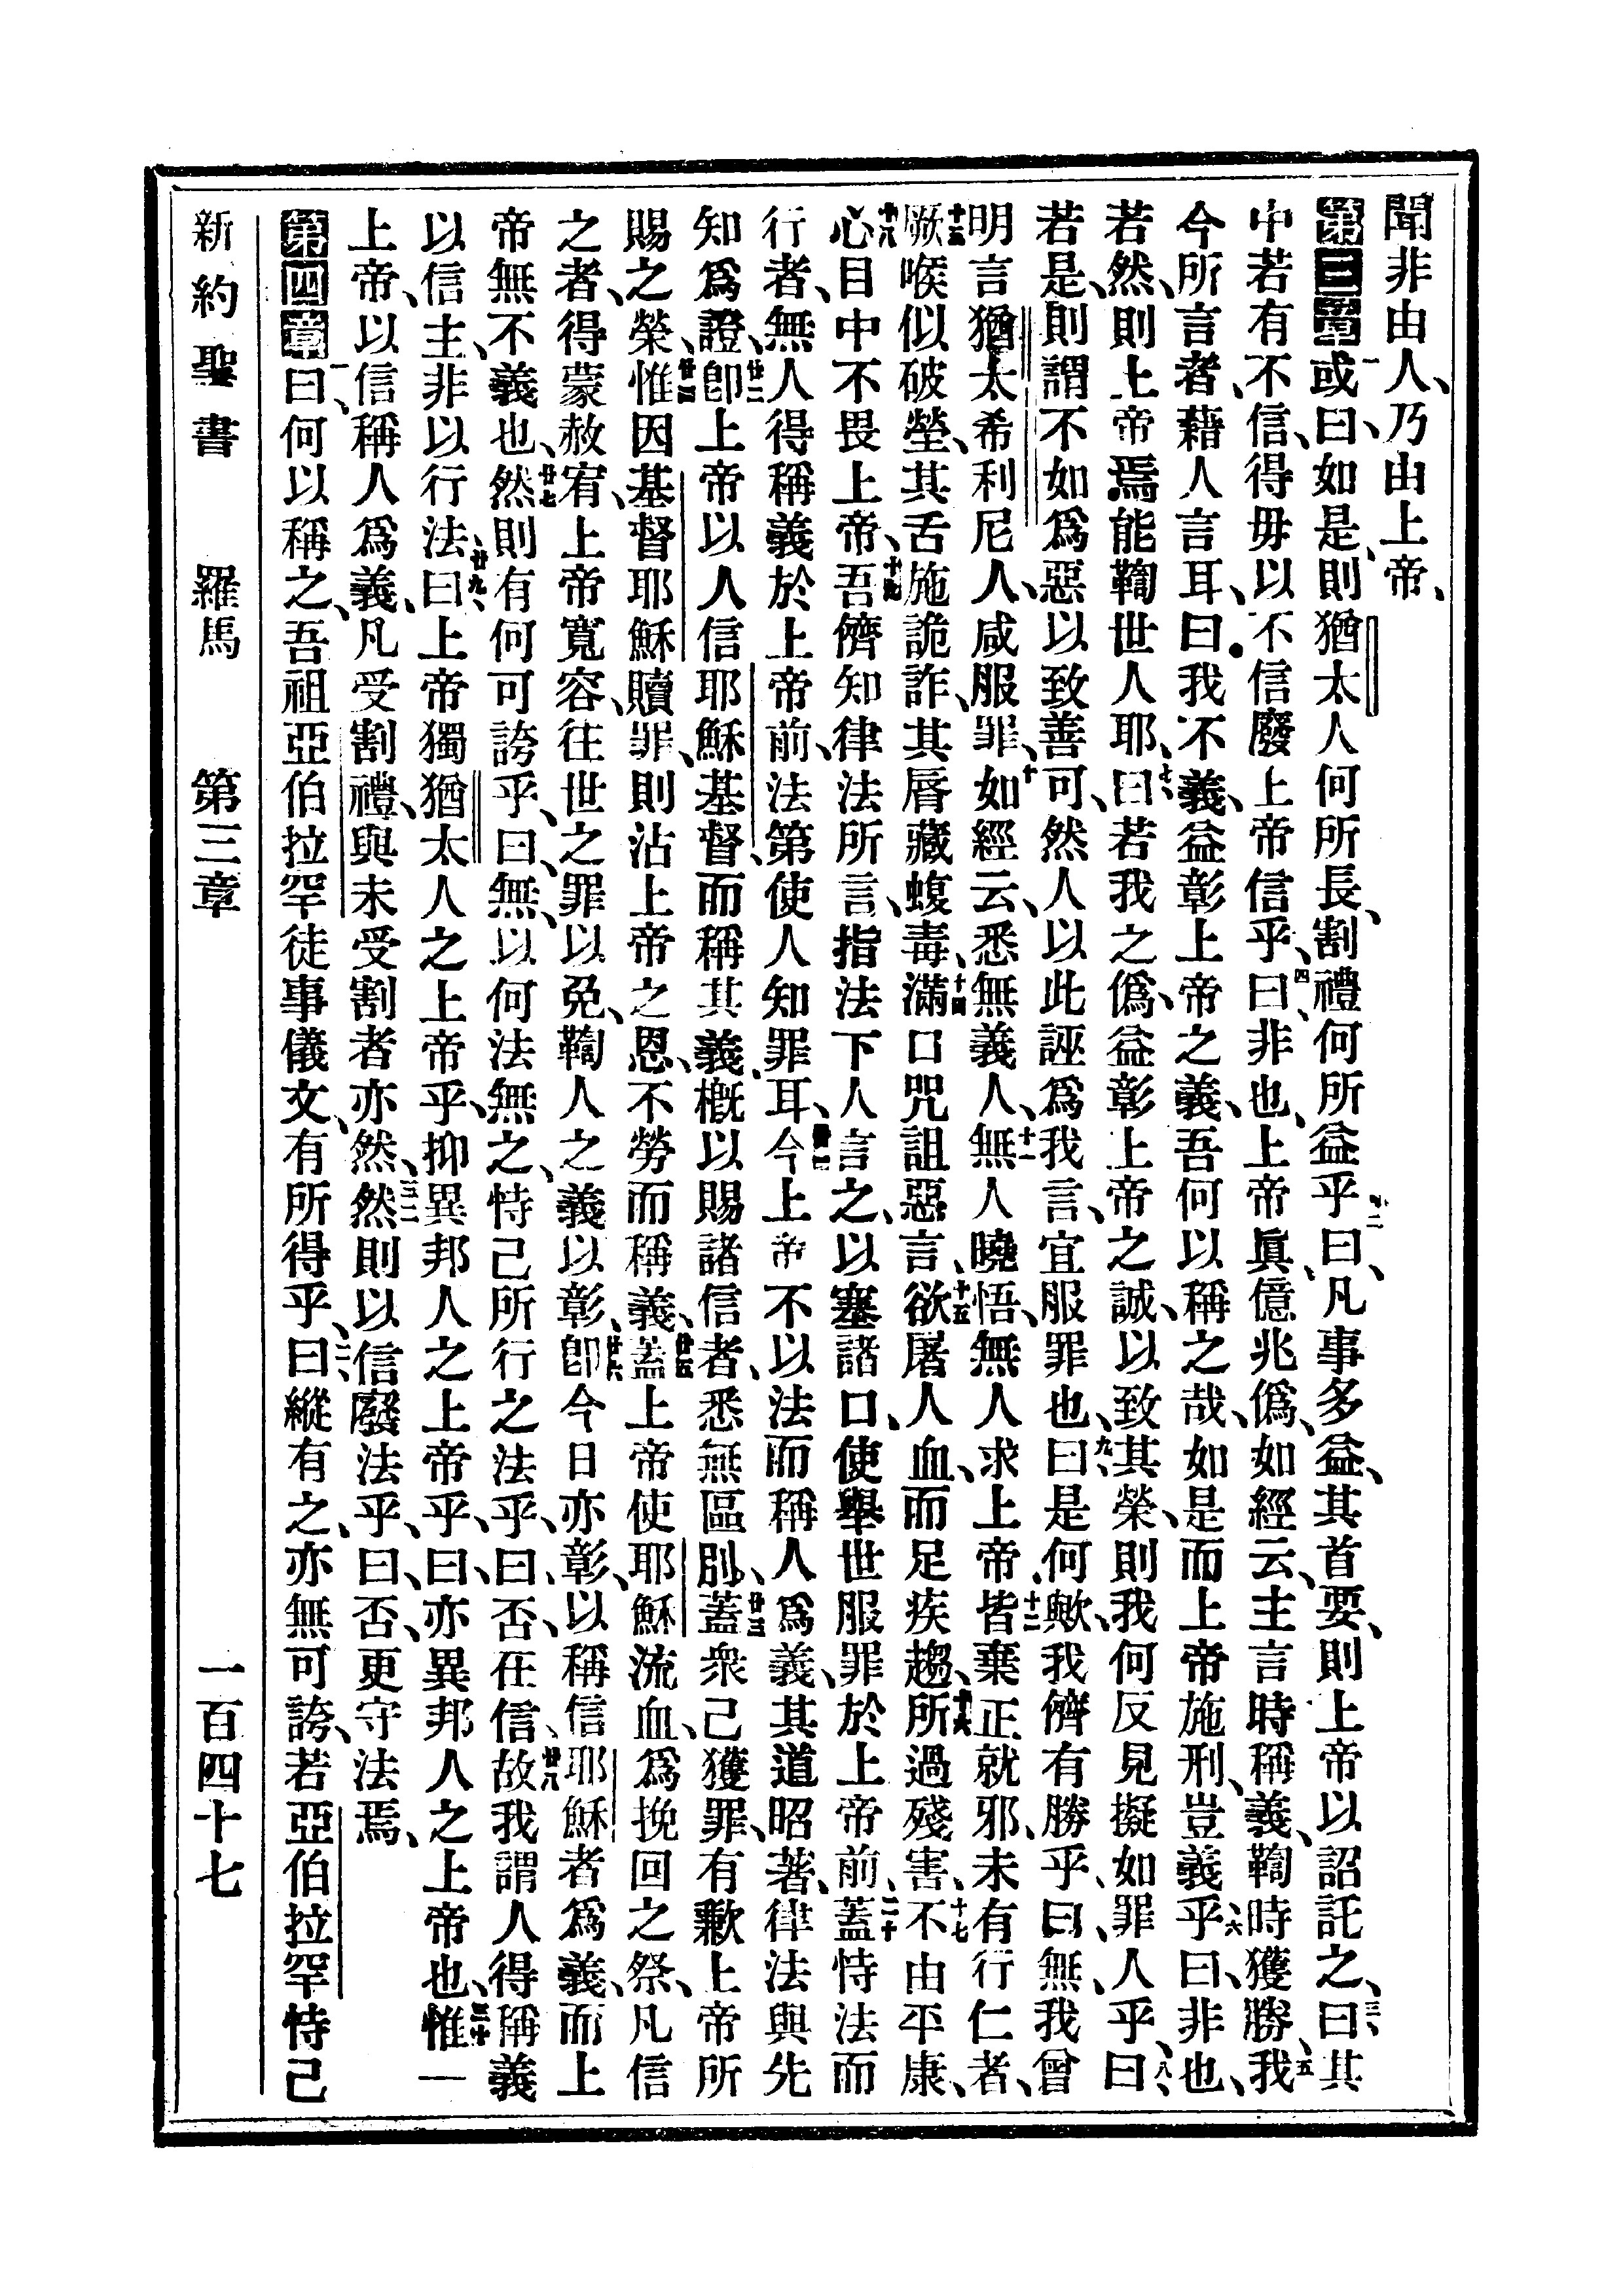 聞非由人、乃由上帝、
第三章一或曰、如是、則猶太人何所長、割禮何所益乎、二曰、凡事多益、其首要、則上帝以詔託之、三曰、其
中若有不信、得毋以不信廢上帝信乎、四曰、非也、上帝眞、億兆僞、如經云、主言時稱義、鞫時獲勝、五我
今所言者、藉人言耳、曰、我不義、益彰上帝之義、吾何以稱之哉、如是而上帝施刑、豈義乎、六曰、非也、
若然、則上帝焉能鞫世人耶、七曰、若我之僞、益彰上帝之誠、以致其榮、則我何反見擬如罪人乎、八曰、
若是、則謂不如爲惡以致善可、然人以此誣爲我言、宜服罪也、九曰、是何歟、我儕有勝乎、曰、無、我曾
明言猶太希利尼人、咸服罪、十如經云、悉無義人、十一無人曉悟、無人求上帝、十二皆棄正就邪、未有行仁者、
十三厥喉似破塋、其舌施詭詐、其脣藏蝮毒、十四滿口咒詛惡言、十五欲屠人血、而足疾趨、十六所過殘害、十七不由平康、
十八心目中不畏上帝、十九吾儕知律法所言、指法下人言之、以塞諸口、使舉世服罪於上帝前、二十蓋恃法而
行者、無人得稱義於上帝前、法第使人知罪耳、廿一今上帝不以法而稱人爲義、其道昭著、律法與先
知爲證、廿二卽上帝以人信耶穌基督、而稱其義、槪以賜諸信者、悉無區別、廿三蓋衆己獲罪、有歉上帝所
賜之榮、廿四惟因基督耶穌贖罪、則沾上帝之恩、不勞而稱義、廿五蓋上帝使耶穌流血、爲挽回之祭、凡信
之者、得蒙赦宥、上帝寬容、往世之罪以免、鞫人之義以彰、廿六卽今日亦彰、以稱信耶穌者爲義、而上
帝無不義也、廿七然則有何可誇乎、曰、無、以何法無之、恃己所行之法乎、曰、否、在信、廿八故我謂人得稱義
以信主、非以行法、廿九曰、上帝獨猶太人之上帝乎、抑異邦人之上帝乎、曰、亦異邦人之上帝也、三十惟一
上帝、以信稱人爲義、凡受割禮、與未受割者亦然、三一然則以信廢法乎、曰、否、更守法焉、
第四章一曰、何以稱之、吾祖亞伯拉罕徒事儀文、有所得乎、二曰、縱有之、亦無可誇、若亞伯拉罕恃己
新約聖書 羅馬 第三章 一百四十七